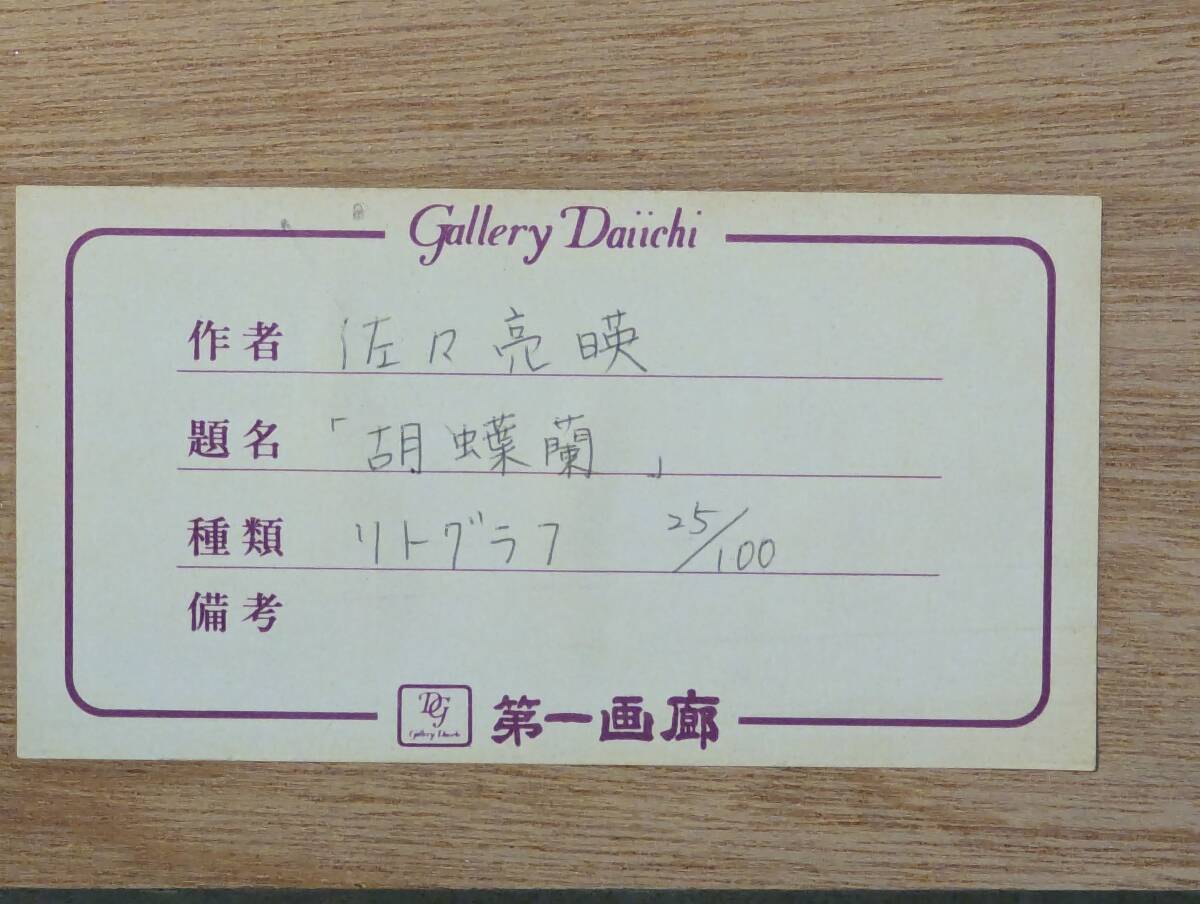 Gallery Daiichi
作者 佐々亮暎
題名 「胡蝶蘭」
種類 リトグラフ 25/100
備考
DG
Gallery Daiichi
第一画廊